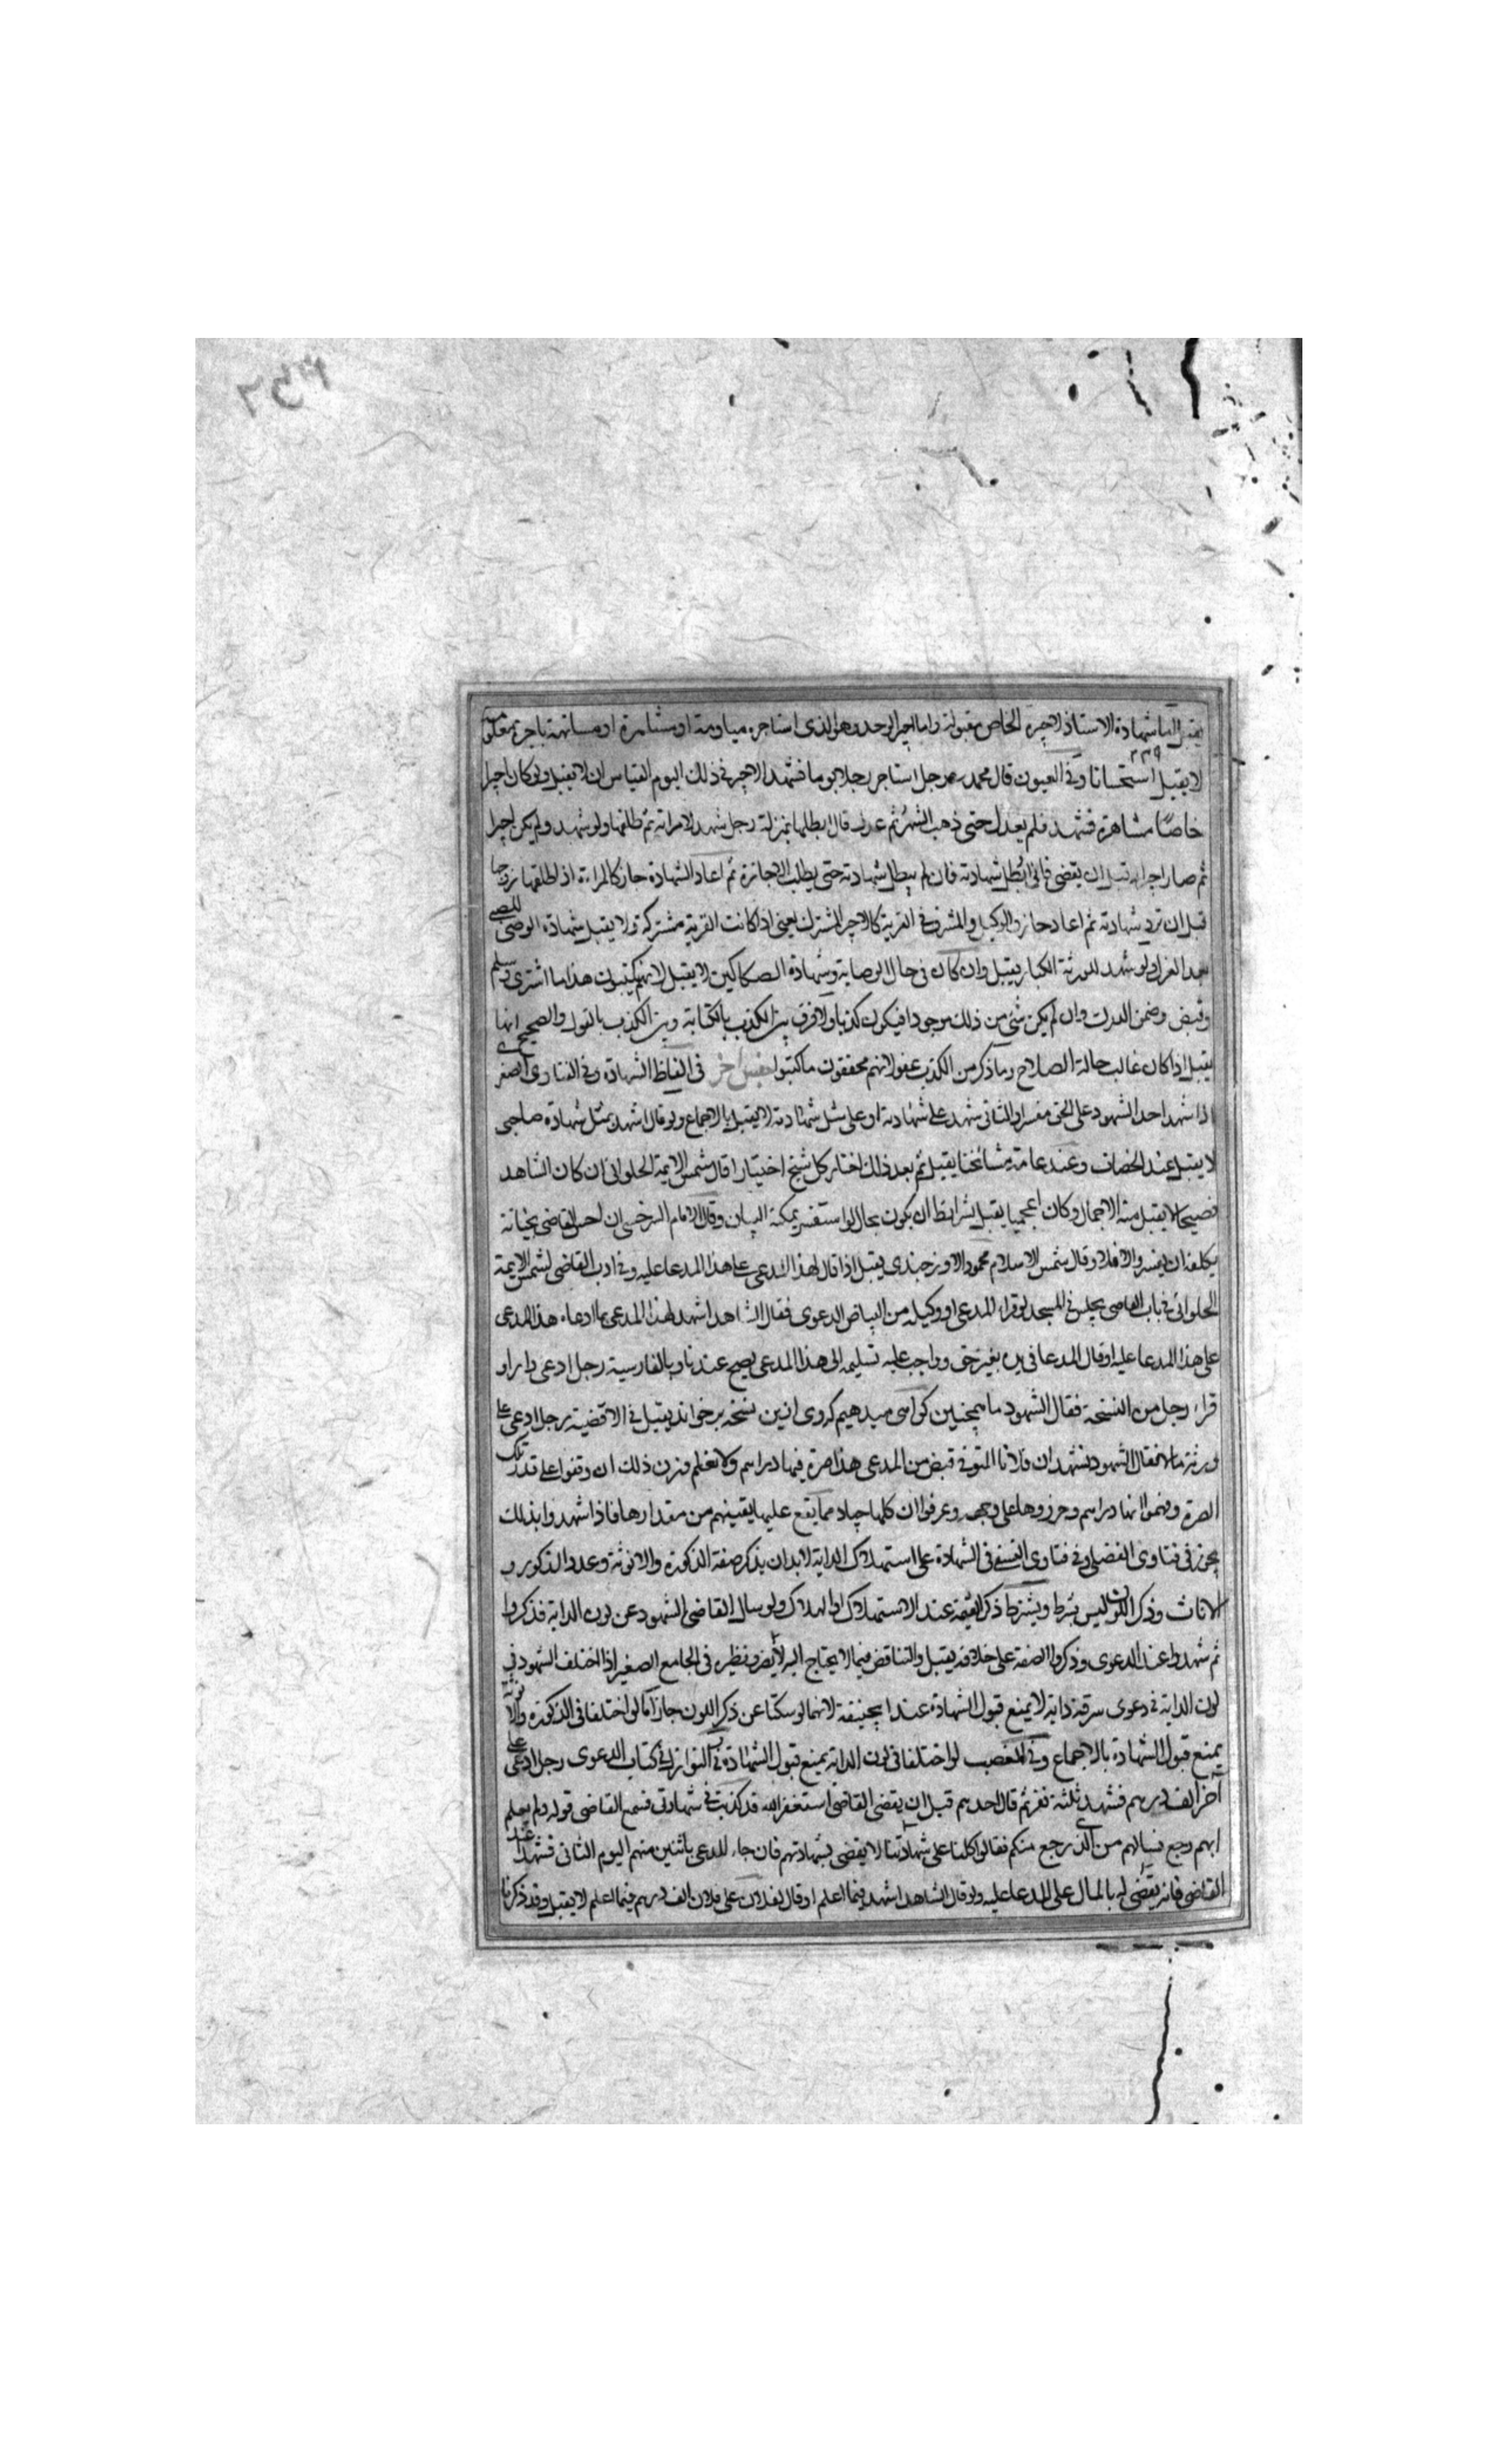 يقبل اما شهادة الاستاذ لاجيره الخاص مقبولة واما اجير الوحد وهو الذى استاجره مياومة او مشاهرة او مسانهة باجرة معلومة
لا يقبل استحسانا وفى العيون قال محمد رجل استاجر رجلا يوما فشهد الاجير فى ذلك اليوم القياس ان لا يقبل ولو كان اجيرا
خاصا مشاهرة فشهد فلم يعدل حتى ذهب الشهر ثم عدل قال ابطلها بمنزلة رجل شهد لامراته ثم طلقها ولو شهد ولم يكن اجيرا
ثم صار اجيرا له قبل ان يقضى فانى ابطل شهادته فان لم يبطل شهادته حتى يطلب الاجازة ثم اعاد الشهادة جاز كالمراءة اذا طلقها زوجها
قبل ان ترد شهادته ثم اعاد جاز والوكيل والمشرف فى القرية كالاجير المشترك يعنى اذا كانت القرية مشتركة ولا يقبل شهادة الوصى للصبى
بعد العزل ولو شهد للورثة الكبار يقبل وان كان فى حال الوصاية وشهادة الصكاكين لا يقبل لانهم يكتبون هذا ما اشترى وسلم
وقبض وضمن الدرك وان لم يكن شئ من ذلك موجودا فيكون كذبا ولا فرق بين الكذب بالكتابة وبين الكذب بالقول والصحيح انها
يقبل اذا كان غالب حاله الصلاح وما ذكر من الكذب عفو لانهم محققون ما كتبوا جنس اخر فى الفاظ الشهادة وفى الفتاوى الصغرى
اذا شهد احد الشهود على الحق مفسرا والثانى شهد على شهادته او على مثل شهادته لا يقبل بالاجماع ولو قال اشهد بمثل شهادة صاحبى
لا يقبل عند الخصاف وعند عامة مشائخنا يقبل ثم بعد ذلك اختار كل شيخ اختيارا قال شمس الايمة الحلوانى ان كان الشاهد
فصيحا لا يقبل منه الاجمال وكان اعجميا يقبل بشرائط ان يكون بحال لو استفسر يمكنه البيان وقال الامام السرخسى ان احس القاضى بخيانة
يكلفه ان يفسر والا فلا وقال شمس الاسلام محمود الاوزجندى يقبل اذا قال لهذا المدعى على هذا المدعا عليه وفى ادب القاضى لشمس الايمة
الحلوانى فى باب القاضى يجلس فى المسجد لو قراء المدعى او وكيله من البياض الدعوى فقال الشاهد اشهد لهذا المدعى بما ادعاه هذا المدعى
على هذا المدعا عليه او قال المدعا فى يده بغير حق وواجب عليه تسليمه الى هذا المدعى يصح عندنا وبالفارسية رجل ادعى دارا و
قراء رجل من النسخة فقال الشهود ما همچنين كواهى ميدهيم كه وى ازين نسخه برخواند يقبل فى الاقضية رجل ادعى على
ورثة مالا فقال الشهود نشهد ان فلانا المتوفى قبض من المدعى هذا صرة فيها دراهم ولا نعلم وزن ذلك ان وقفوا على قدر تلك
الصرة وفهموا انها دراهم وحرزوها على وجه وعرفوا ان كلها جياد مما يقع عليها يقينهم من مقدارها فاذا شهدوا بذلك
يجوز فى فتاوى الفضلى وفى فتاوى النسفى فى الشهادة على استهلاك الدابة لا بد ان يذكر صفة الذكورة والانوثة وعدد الذكور و
الاناث وذكر اللون ليس بشرط ويشترط ذكر القيمة عند الاستهلاك او الهلاك ولو سال القاضى الشهود عن لون الدابة فذكروا
ثم شهدوا عند الدعوى وذكروا الصفة على خلافه يقبل والتناقض فيما لا يحتاج اليه لا يضر ونظيره فى الجامع الصغير اذا اختلف الشهود فى
لون الدابة فى دعوى سرقة دابة لا يمنع قبول الشهادة عند ابيحنيفة لانهما لو سكتا عن ذكر اللون جاز اما لو اختلفا فى الذكورة والانوثة
يمنع قبول الشهادة بالاجماع وفى الغصب لو اختلفا فى لون الدابة يمنع قبول الشهادة فى النوازل فى كتاب الدعوى رجل ادعى على
آخر الف درهم فشهد ثلثة نفر ثم قال احدهم قبل ان يقضى القاضى استغفر الله قد كذبت فى شهادتى فسمع القاضى قوله ولم يعلم
ايهم رجع فسالهم من الذى رجع منكم فقالوا كلنا على شهادتنا لا يقضى بشهادتهم فان جاء المدعى باثنين منهم اليوم الثانى فشهدا عند
القاضى فانه يقضى له بالمال على المدعا عليه ولو قال الشاهد اشهد فيما اعلم او قال لفلان على فلان الف درهم فيما اعلم لا يقبل وقد ذكرنا